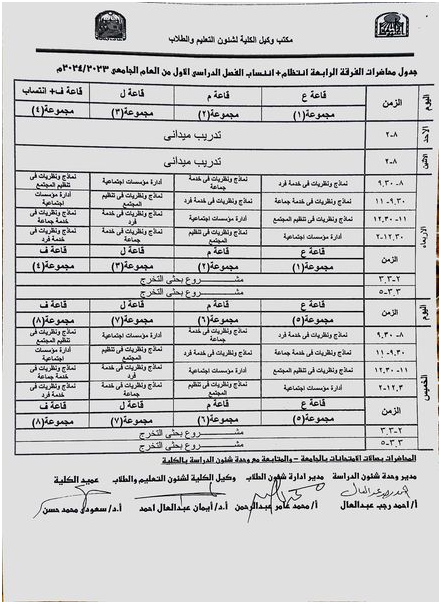 مكتب وكيل الكلية لشئون التعليم والطلاب
جدول محاضرات الفرقة الرابعة انتظام+ انتساب الفصل الدراسى الاول من العام الجامعى ٢٠٢٤/٢٠٢٣م
اليوم الزمن قاعة ع قاعة م قاعة ل قاعة ف+ انتساب
مجموعة(١) مجموعة(٢) مجموعة(٣) مجموعة(٤)
الاحد ٨-٢ تدريب ميدانى
الاثنين ٨-٢ تدريب ميدانى
الاربعاء ٨-٩,٣٠ نماذج ونظريات فى خدمة فرد نماذج ونظريات فى خدمة جماعة ادارة مؤسسات اجتماعية نماذج ونظريات فى تنظيم المجتمع
٩,٣٠-١١ نماذج ونظريات فى خدمة جماعة نماذج ونظريات فى خدمة فرد نماذج ونظريات فى تنظيم المجتمع ادارة مؤسسات اجتماعية
١١-١٢,٣٠ نماذج ونظريات فى تنظيم المجتمع ادارة مؤسسات اجتماعية نماذج ونظريات فى خدمة فرد نماذج ونظريات فى خدمة جماعة
١٢,٣٠-٢ ادارة مؤسسات اجتماعية نماذج ونظريات فى تنظيم المجتمع نماذج ونظريات فى خدمة جماعة نماذج ونظريات فى خدمة فرد
الزمن قاعة ع قاعة م قاعة ل قاعة ف
مجموعة(١) مجموعة(٢) مجموعة(٣) مجموعة(٤)
٢-٣,٣ مشروع بحثى التخرج
٣,٣-٥ مشروع بحثى التخرج
اليوم الزمن قاعة ع قاعة م قاعة ل قاعة ف
مجموعة(٥) مجموعة(٦) مجموعة(٧) مجموعة(٨)
الخميس ٨-٩,٣٠ نماذج ونظريات فى خدمة فرد نماذج ونظريات فى خدمة جماعة ادارة مؤسسات اجتماعية نماذج ونظريات فى تنظيم المجتمع
٩,٣٠-١١ نماذج ونظريات فى خدمة جماعة نماذج ونظريات فى خدمة فرد نماذج ونظريات فى تنظيم المجتمع ادارة مؤسسات اجتماعية
١١-١٢,٣٠ نماذج ونظريات فى تنظيم المجتمع ادارة مؤسسات اجتماعية نماذج ونظريات فى خدمة فرد نماذج ونظريات فى خدمة جماعة
١٢,٣-٢ ادارة مؤسسات اجتماعية نماذج ونظريات فى تنظيم المجتمع نماذج ونظريات فى خدمة جماعة نماذج ونظريات فى خدمة فرد
الزمن قاعة ع قاعة م قاعة ل قاعة ف
مجموعة(٥) مجموعة(٦) مجموعة(٧) مجموعة(٨)
٢-٣,٣ مشروع بحثى التخرج
٣,٣-٥ مشروع بحثى التخرج
المحاضرات بصالات الامتحانات بالجامعة – والمتابعة مع وحدة شئون الدراسة بالكلية
مدير وحدة شئون الدراسة مدير ادارة شئون الطلاب وكيل الكلية لشئون التعليم والطلاب عميد الكلية
أ/ احمد رجب عبدالعال أ/محمد عامر عبدالرحمن أ.د/ أيمان عبدالعال احمد أ.د/ سعودى محمد حسن